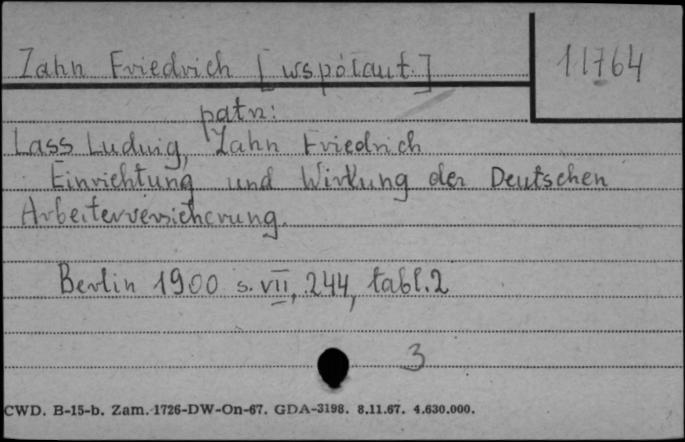 Zahn Friedrich [współaut.]
11764
patrz:
Lass Ludwig, Zahn Friedrich
Einrichtung und Wirkung der Deutschen
Arbeiterversicherung.
Berlin 1900 s. VII, 244, tabl. 2
3
CWD. B-15-b. Zam. 1726-DW-On-67. GDA-3198. 8.11.67. 4.630.000.